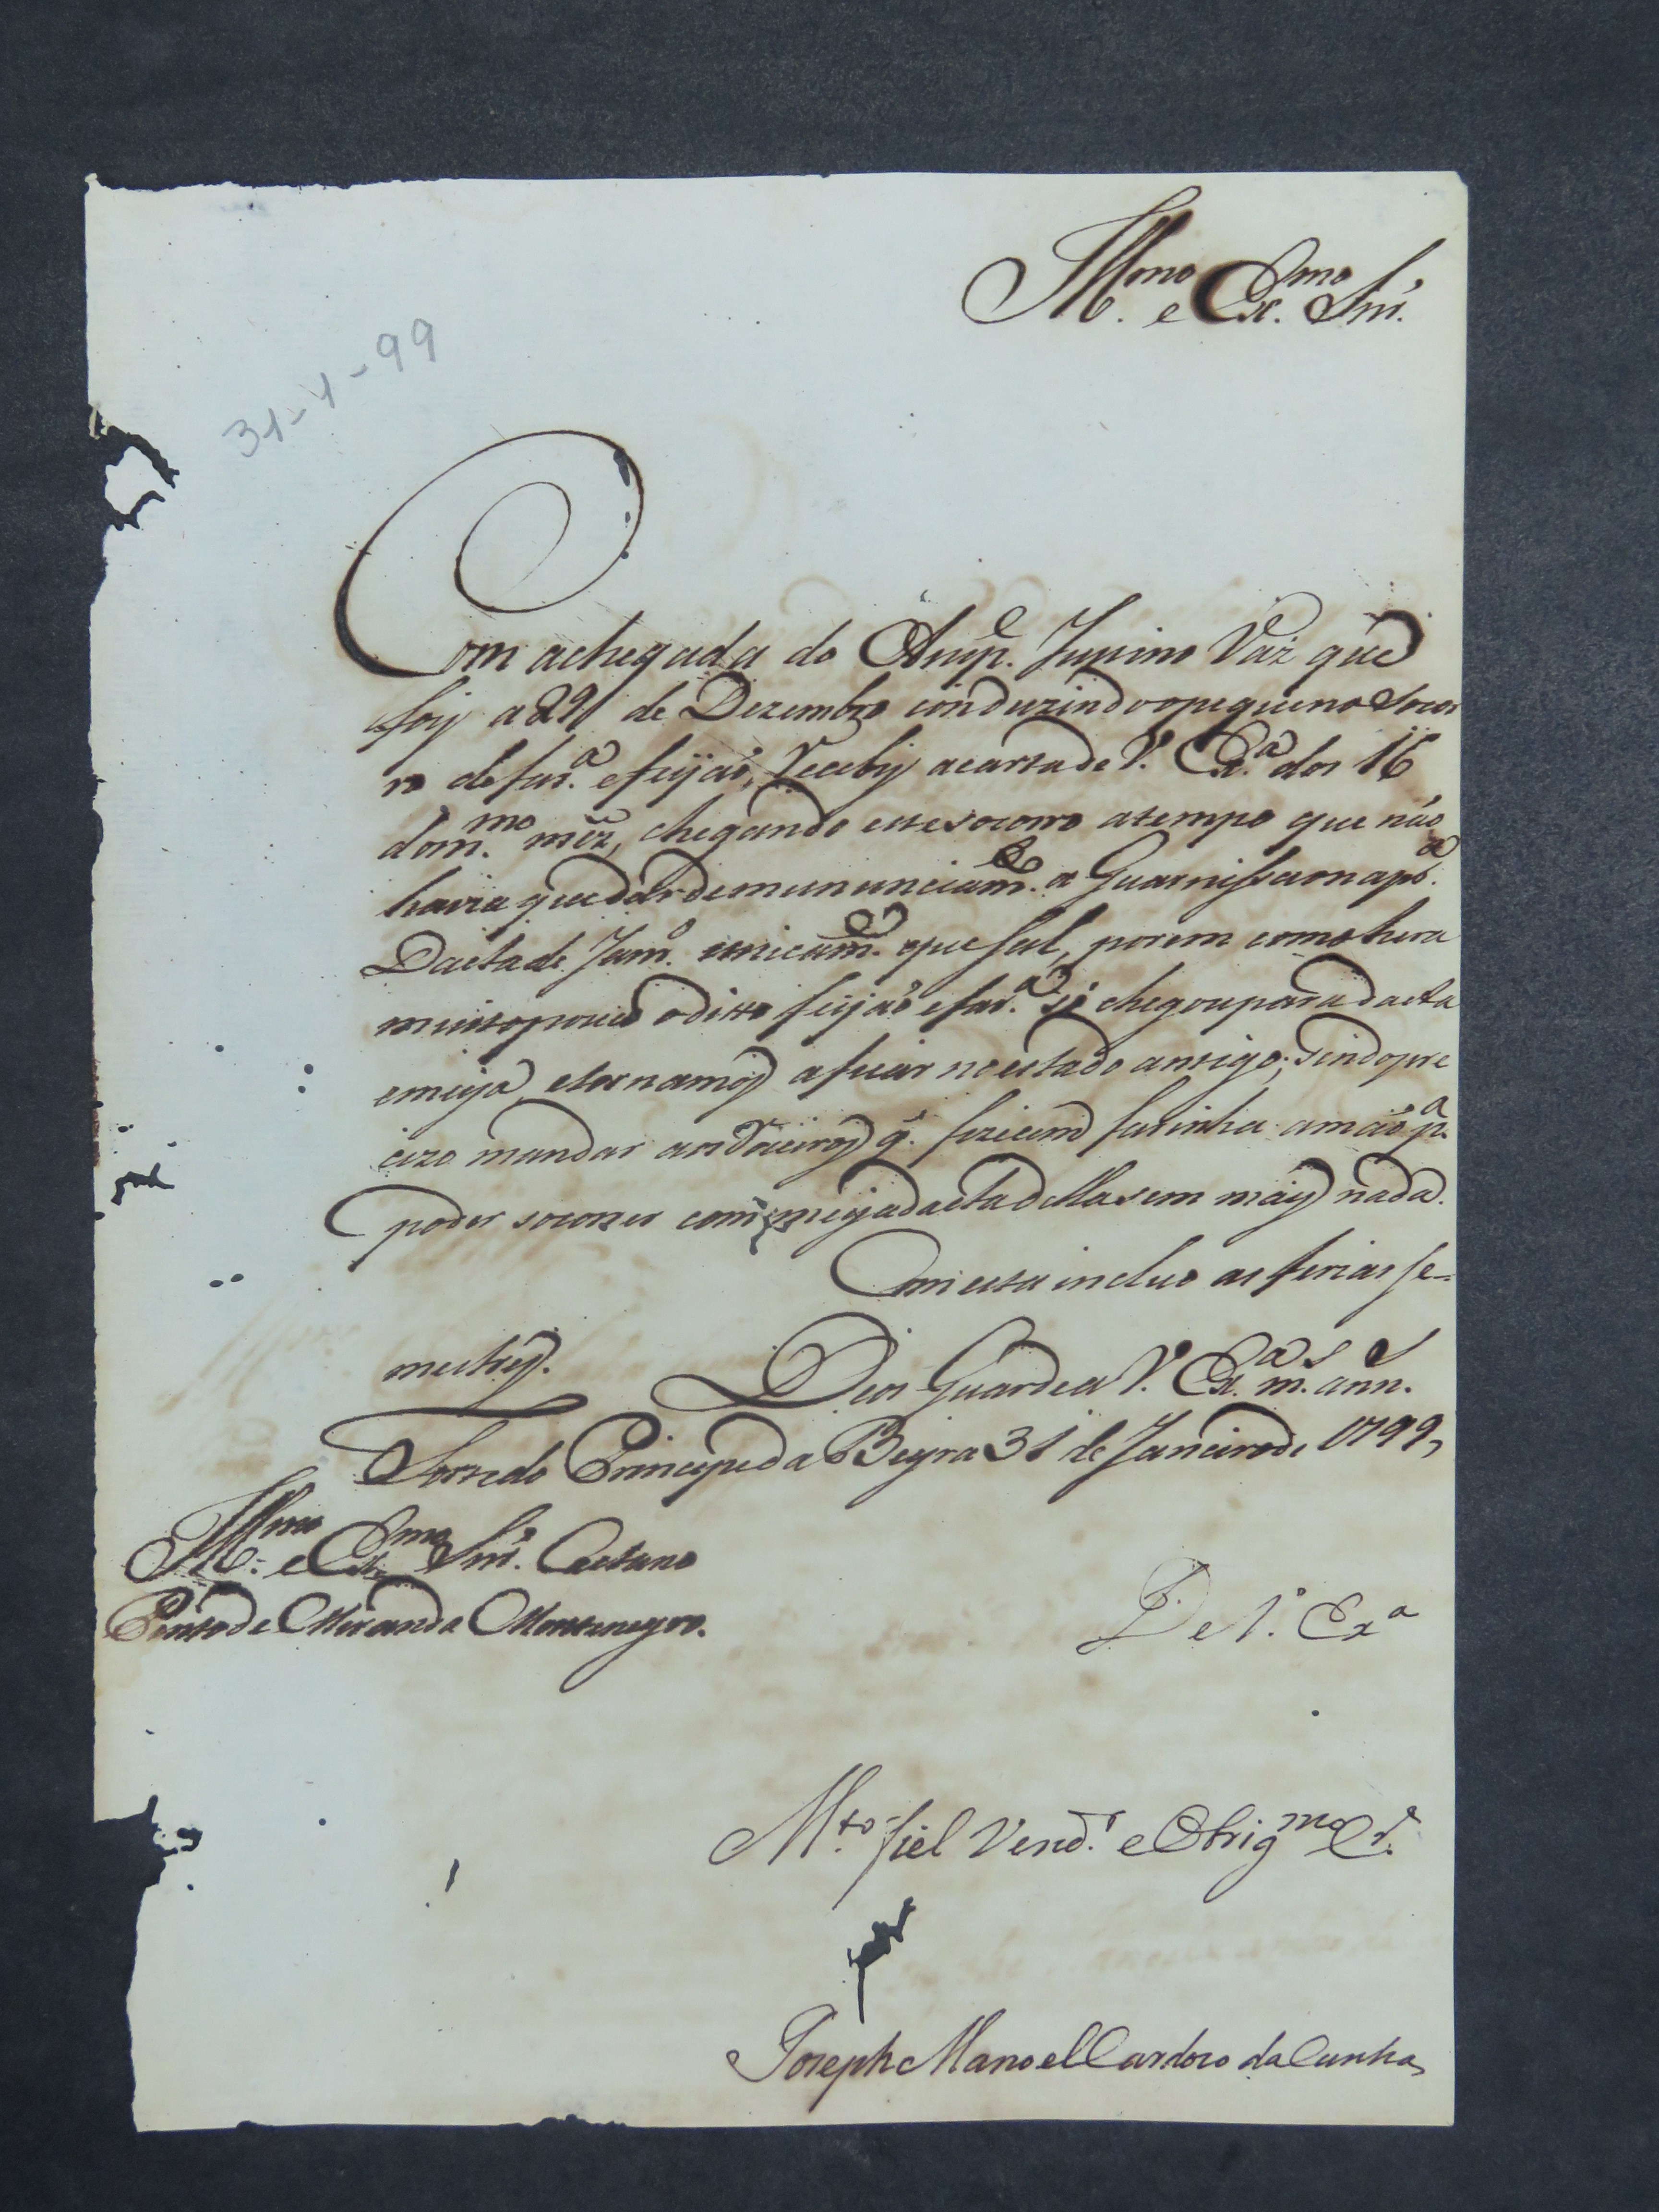 Ill.mo e Ex.mo Snr.
31-1-99
Com achegada do Anp.e Junino Vaz que
foy a 29 de Dezembro conduzindo opequeno Socor
ro de far.a efeijaõ, Recebÿ acarta de V. Ex.a dos 16
dom.mo mêz, chegando este socorro atempo que naõ
havia que dár de munuiciam.to a Guarnissaon ap.a
Dacta de Janr.o unicam.te que sal, porem como hera
muito pouco oditto feijaõ efar.a só chegou para dacta
emeya, etornamos aficar no estado antigo; Sendo pre
cizo mandar aos Vaqueiros q̃. fizecem farinha amaõ p.a
poder socorrer com meyadacta della sem máÿs nada.
Com esta incluo as ferias se=
mestres. Deos Guarde a V. Ex.a m.s ann.s
Forte do Principe da Beyra 31 de Janeiro de 1799,
Ill.mo e Ex.mo Snr. Caetano
Pinto de Miranda Montenegro.
De V. Ex.a
M.to fiel Vend.r e Obrig.mo Cr.o
Joseph Manoel Cardozo da Cunha